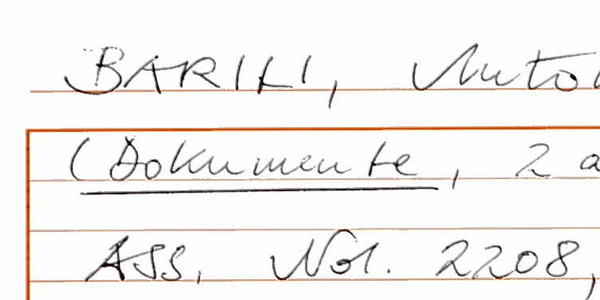 BARILI, Anto
(Dokumente, 2 a
ASS, Not. 2208,